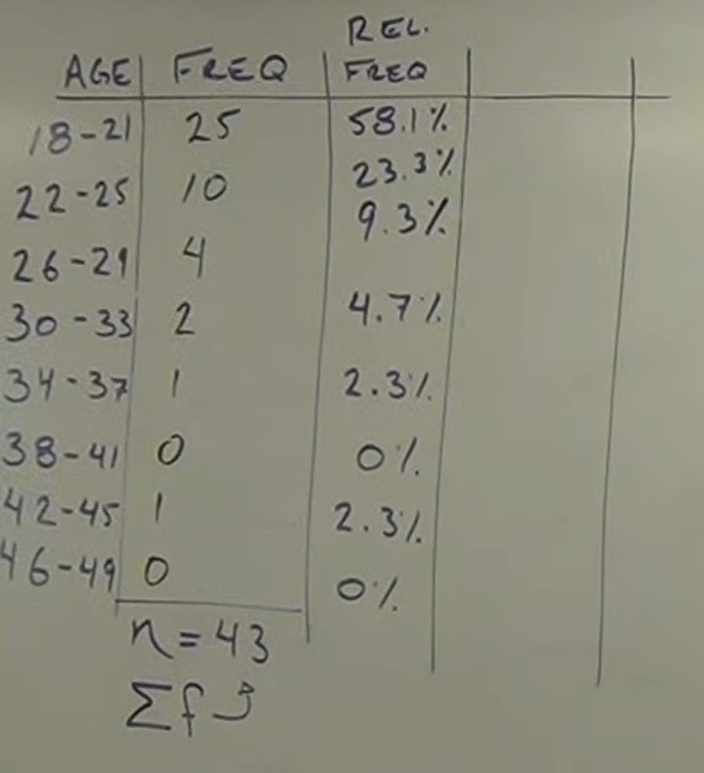 AGE FREQ REL. FREQ
18-21 25 58.1%
22-25 10 23.3%
26-29 4 9.3%
30-33 2 4.7%
34-37 1 2.3%
38-41 0 0%
42-45 1 2.3%
46-49 0 0%
n=43
Σf